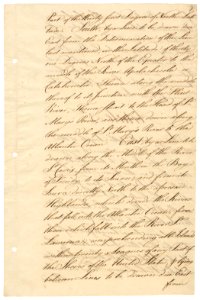 Part of the thirty first Degree of North Lati-
tude. South by a Line to be drawn due
East from the Determination of the Line
last mentioned in the Latitude of thirty
one Degrees North of the Equator to the
middle of the River Apalachicola
Catahouche; thence along the middle
thereof to its Junction with the Flint
River; thence strait to the Head of St.
Mary's River and thence down along
the middle of St. Mary's River to the
Atlantic Ocean. East by a Line to be
drawn along the Middle of the River
St. Croix from its Mouth in the Bay
of Fundy to its Source and from its
Source directly North to the aforesaid
Highlands, which divide the Rivers
that fall into the Atlantic Ocean from
those which fall into the River St.
Lawrence comprehending all Islands
within twenty Leagues of any Part of
the Shores of the United States & lying
between Lines to be drawn due East
from